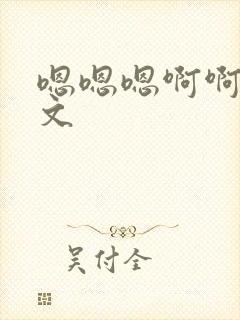 嗯嗯嗯啊啊
文
吴付全